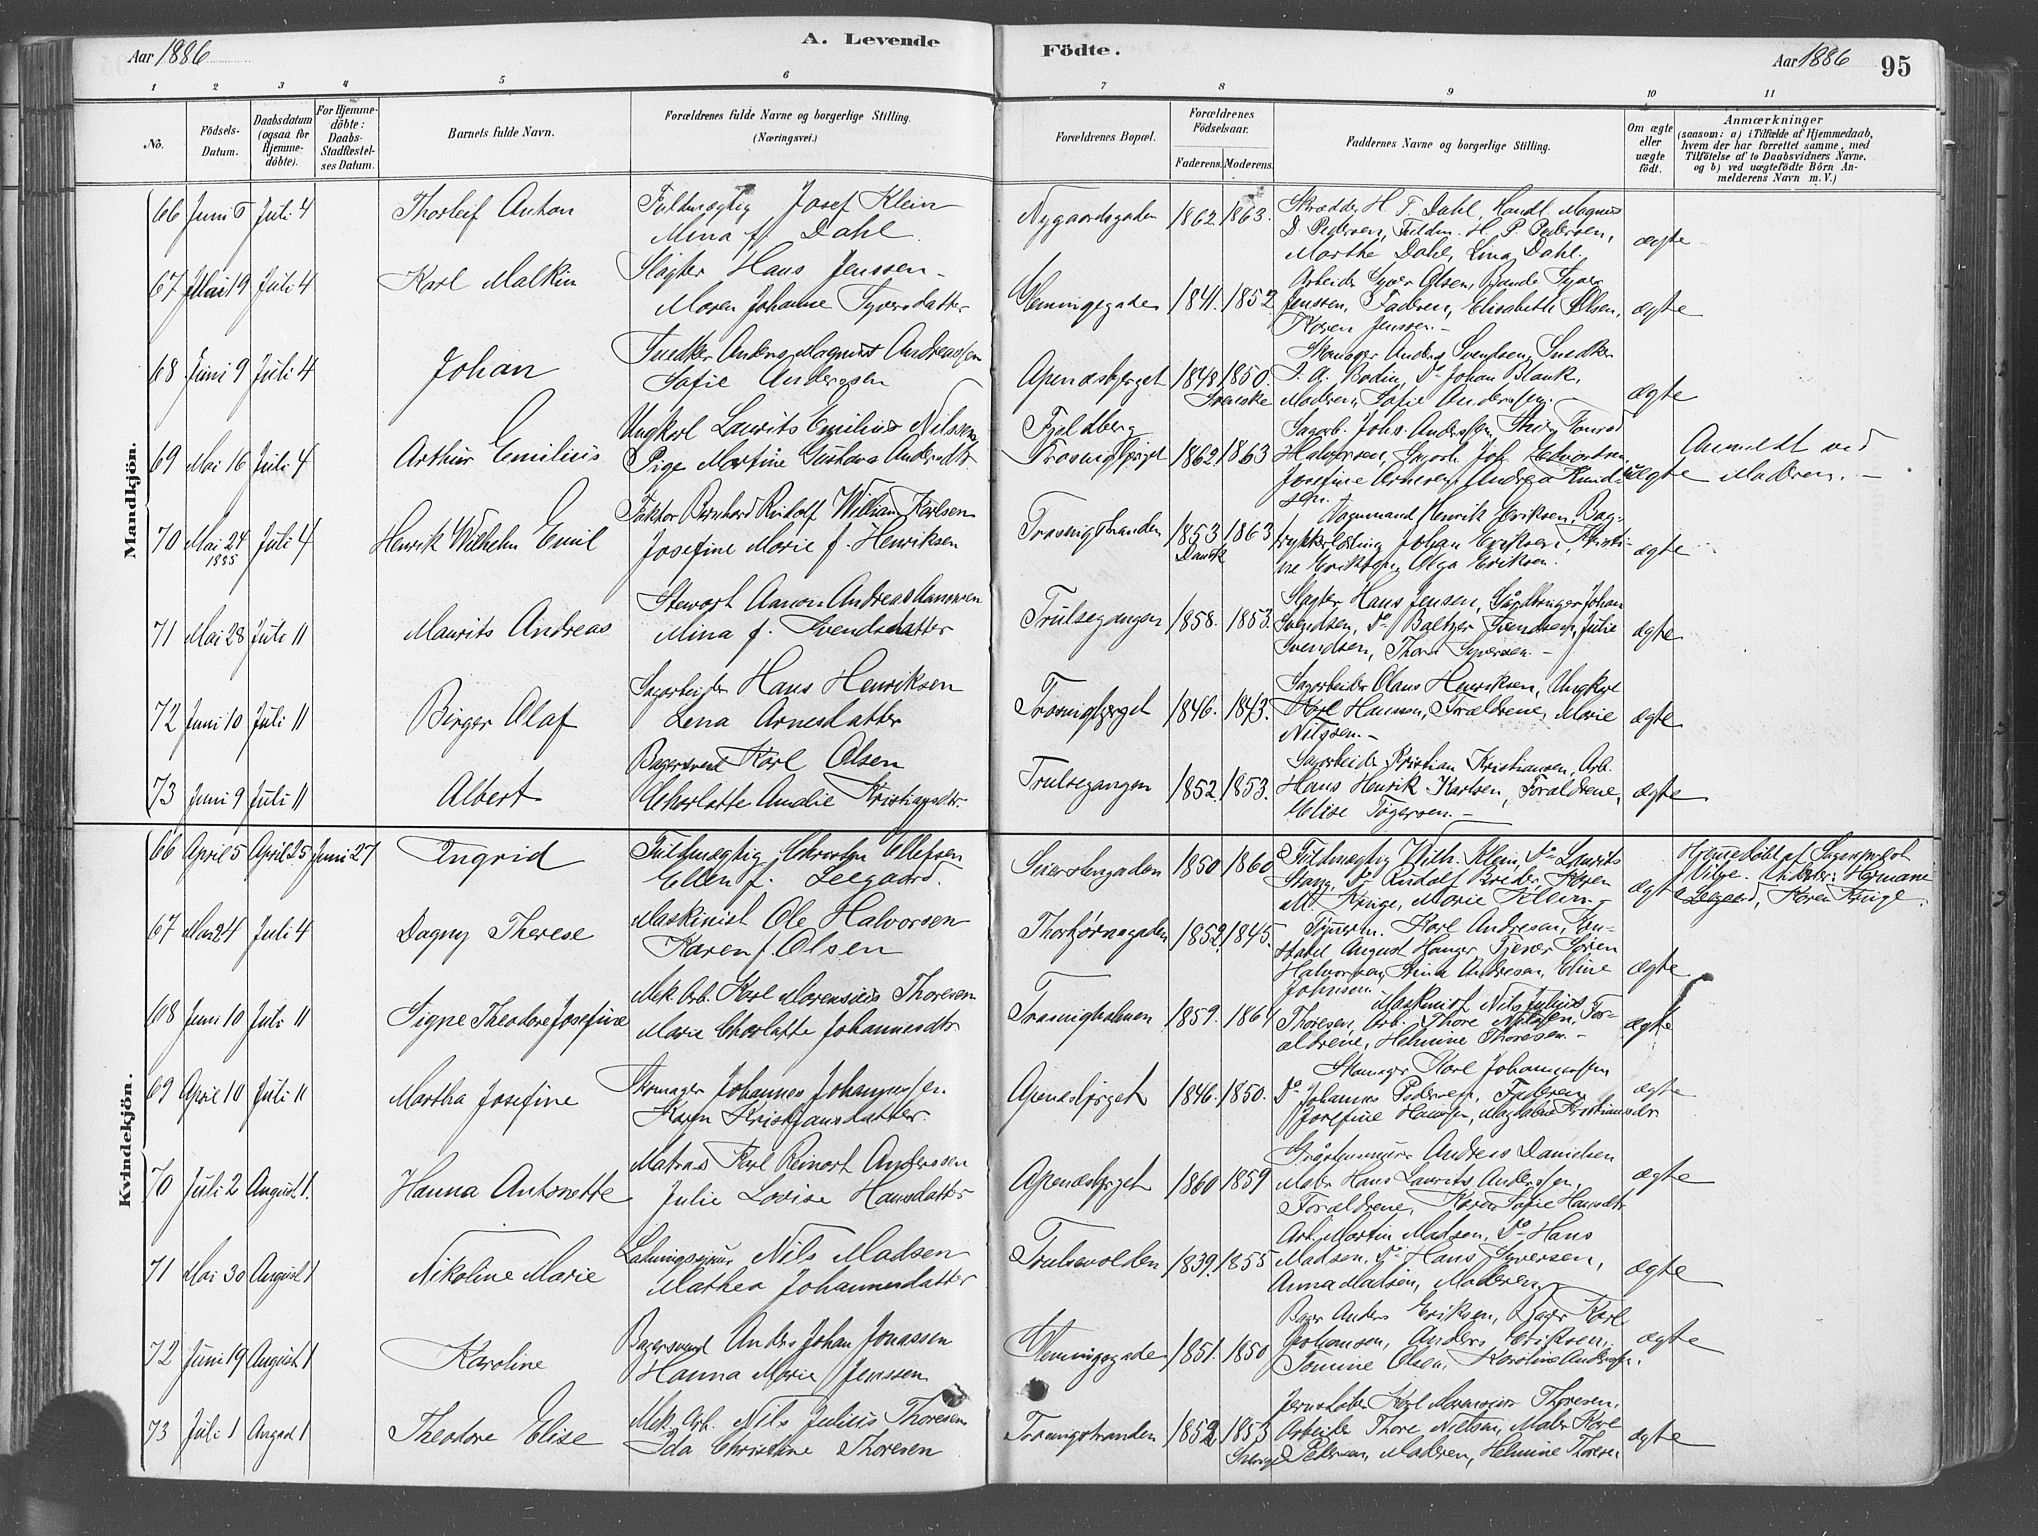 Aar 1886
A. Levende
Födte.
Aar 1886
95
1 2 3 4 5 6 7 8 9 10 11
No.
Födsels-
Datum.
Daabsdatum
(ogsaa for
Hjemme-
döbte).
For Hjemme-
döbte:
Daabs-
Stadfæstel-
ses Datum.
Barnets fulde Navn.
Forældrenes fulde Navne og borgerlige Stilling.
(Næringsvei.)
Forældrenes Bopæl.
Forældrenes
Födselsaar.
Faderens. Moderens.
Faddernes Navne og borgerlige Stilling.
Om ægte
eller
uægte
födt.
Anmærkninger
(saasom: a) i Tilfælde af Hjemmedaab,
hvem der har forrettet samme, med
Tilföielse af to Daabsvidners Navne,
og b) ved uægtefödte Börn An-
melderens Navn m. V.)
Mandkjön.
66 Juni 6 Juli 4 Thorleif Anton
Fuldmægtig Josef Klein
Mina f. Dahl
Nygaardsgaden 1862 1863.
Skrædder H. T. Dahl, Handl. Magnus
D. Pedersen, Fuldm. H. P. Pedersen,
Marthe Dahl, Lina Dahl.
ægte
67 Mai 19 Juli 4 Karl Malkin
Slagter Hans Jenssen
Maren Johanne Syversdatter
1841. 1852
Arbeider Syver Olsen, Bonde Syver
Jenssen, Faderen, Elisabeth Olsen,
Karen Jenssen.
ægte
68 Juni 9 Juli 4 Johan
Snedker Anders Magnus Andreassen
Sofie Anderssen
Apenæsbjerget 1848 1850.
Svenske
Skomager Anders Svendsen, Snedker
J. A. Bodin, Do Johan Blank,
Moderen, Sofie Anderssen.
ægte
69 Mai 16 Juli 4 Arthur Emilius
Ungkarl Laurits Emilius Nilssen
Pige Martine Gustava Andersdtr
Fjeldberg
Trosvigbjerget 1862 1863
Sagarb. Johs. Anderssen,
Halvorsen, Sagarb. Joh. Edvardsen,
Josefine Arnesen, Andrea Knud-
sen.
uægte
Anmeldt ved
Moderen.
70 Mai 24 1885 Juli 4 Henrik Wilhelm Emil
Faktor Bernhard Rudolf William Karlsen
Josefine Marie f. Henriksen
Trosvigstranden 1853 Dansk 1863
Vognmand Henrik Eriksen, Bog-
trykkerlærling Johan Eriksen, Kristi-
ne Eriksen, Olga Eriksen.
ægte
71 Mai 28 Juli 11 Maurits Andreas
Stewart Aamon Andreas Hanssen
Mina f. Svendsdatter
Trulsegangen 1858. 1853.
Slagter Hans Jensen, Gårdbruger Johan
Svendsen, Do Baltzer Svendsen, Julie
Svendsen, Thora Syversen.
ægte
72 Juni 10 Juli 11 Birger Olaf
Sagarbeider Hans Henriksen
Lena Arnesdatter
Trosvigbjerget 1846. 1843.
Sagarbeider Olaus Henriksen, Ungkarl
Karl Hanssen, Forældrene, Marie
Nilssen.
ægte
73 Juni 9 Juli 11 Albert
Bagersvend Karl Olsen
Charlotte Amalie Kristiansdtr.
Trulsegangen 1852. 1853.
Sagarbeider Kristian Kristiansen, Arb.
Hans Henrik Karlsen, Forældrene,
Elise Tøgersen.
ægte
Kvindekjön.
66 April 5 April 25 Juni 27 Ingrid
Fuldmægtig Christen Ellefsen
Ellen f. Leegaard.
1850 1860
Fuldmægtig Vilh. Klein, Do Laurits
Stang, Do Rudolf Breder, Karen
M. Kringe, Marie Klein.
ægte
Hjemmedøbt af Sogneprest
Vibe. Vidner: Hermane
Leegaard, Karen Kringe.
67 Mai 24 Juli 4 Dagny Therese
Maskinist Ole Halvorsen
Karen f. Olsen
Thorbjørnsgaden 1852. 1845.
Tømmerm. Karl Andresen, Kon-
stabel August Hanger, Søren
Halvorsen, Stina Andresen, Eline
Johnsen.
ægte
68 Juni 10 Juli 11 Signe Theodore Josefine
Mek. Arb. Karl Marensius Thoresen
Marie Charlotte Johannesdtr
Trosvigholmen 1859. 1864
Maskinist Nils Julius
Thoresen, Arb. Thore Nilssen, For-
ældrene, Helmine Thoresen.
ægte
69 April 10 Juli 11 Martha Josefine
Skomager Johannes Johannessen
Karen Kristjansdatter.
Apenæsbjerget 1846. 1850.
Skomager Karl Johannessen
Do Johannes Pedersen, Faderen,
Josefine Hanssen, Magdalene Kristiansdr.
ægte
70 Juli 2 August 1. Hanna Antonette
Matros Karl Reinart Anderssen
Julie Lovise Hansdatter
Apenæsbjerget 1860 1859
Gråstensmurer Andreas Danielsen
Maler Hans Laurits Anderssen,
Forældrene, Karen Sofie Hansdtr
ægte
71 Mai 30 August 1 Nikoline Marie
Nils Madsen
Mathea Johannesdatter
Trulsevolden 1839. 1855
Arb. Martin Madsen, Do Hans
Madsen, Do Hans Syversen,
Anna Madsen, Moderen.
ægte
72 Juni 19 August 1 Karoline
Bagersvend Anders Johan Jonassen
Hanna Marie Jenssen
1851. 1850
Bager Anders Eriksen, Bager Karl
Johansen, Anders Eriksen,
Tomine Olsen, Karoline Anderssen.
ægte
73 Juli 1 August 1 Theodore Elise
Mek. Arb. Nils Julius Thoresen
Ida Christine Thoresen
Trosvigstranden 1852 1853
Sverige
Karl Marensius Thoresen,
Arbeider Thore Nielsen, Maler Karl
Pedersen, Moderen, Helmine Thoresen
ægte